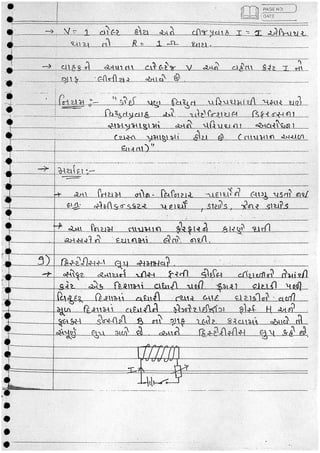 PAGE NO.
DATE
→ V = 1 વોલ્ટ હોય અને વીજપ્રવાહ I = 1 એમ્પિયર
થાય તો R = 1 Ω થાય.
→ વાહકને આપાતા વોલ્ટેજ V અને વહેતા કરંટ I નો
ગ્રાફ લીનીયર આવે છે.
નિયમ :- "કોઈ પણ વિદ્યુત પરિપથમાંથી પસાર થતો
વિદ્યુતપ્રવાહ એ પોટેન્શિયલ ડિફરન્સના
સમપ્રમાણમાં અને પરિપથના અવરોધના
વ્યસ્ત પ્રમાણમાં હોય છે (તાપમાન અચળ
ધારતા)"
→ મર્યાદા :-
→ આ નિયમ નોન-લિનિયર પદાર્થોને લાગુ પડતો નથી
દા.ત. સેમીકન્ડકટર પદાર્થો, ડાયોડ, ઝેનર ડાયોડ
→ આ નિયમ તાપમાન ફેરફારને કારણે થતી
અસરોને ધ્યાનમાં લેતો નથી.
૭) હિસ્ટેરીસીસ લુપ સમજાવો
→ સોફ્ટ આયર્ન પીસ ફરતી કોઈલ વીંટાળીને તેમાંથી
કરંટ એક દિશામાં વધારી પછી ક્રમશ ઘટાડી પછી
વિરુદ્ધ દિશામાં વધારી ત્યાર બાદ ઘટાડીને વળી
મૂળ દિશામાં વધારીને મેગ્નેટાઈઝીંગ ફોર્સ H અને
ફ્લક્સ ડેન્સીટી B નો ગ્રાફ પ્લોટ કરવામાં આવે તો
સંપૂર્ણ લુપ મળે છે. આને હિસ્ટેરીસીસ લુપ કહે છે.
I